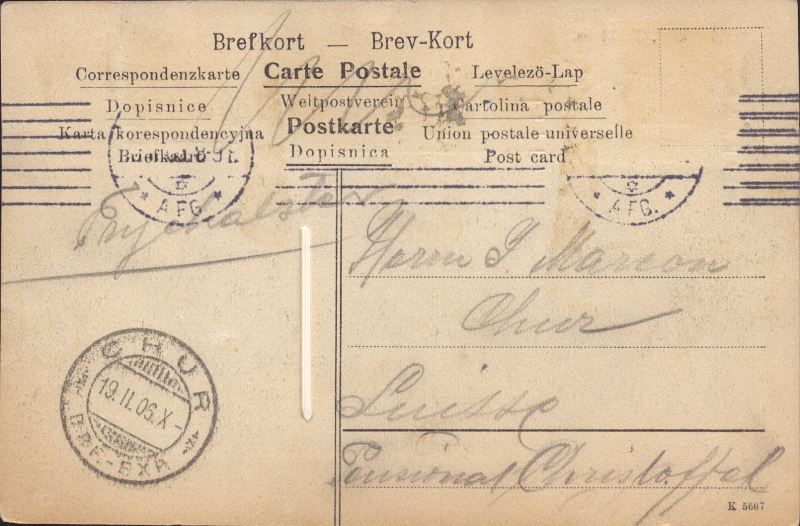 Brefkort — Brev-Kort
Correspondenzkarte Carte Postale Levelezö-Lap
Dopisnice Weltpostverein Cartolina postale
Karta korespondencyjna Postkarte Union postale universelle
Briefkaart Dopisnica Post card
* AFG *
* AFG. *
Herrn J. Marcon
Chur
Suisse
Pensionat Christoffel
CHUR
19.II.06.X-
BRF.-EXP.
K 5667